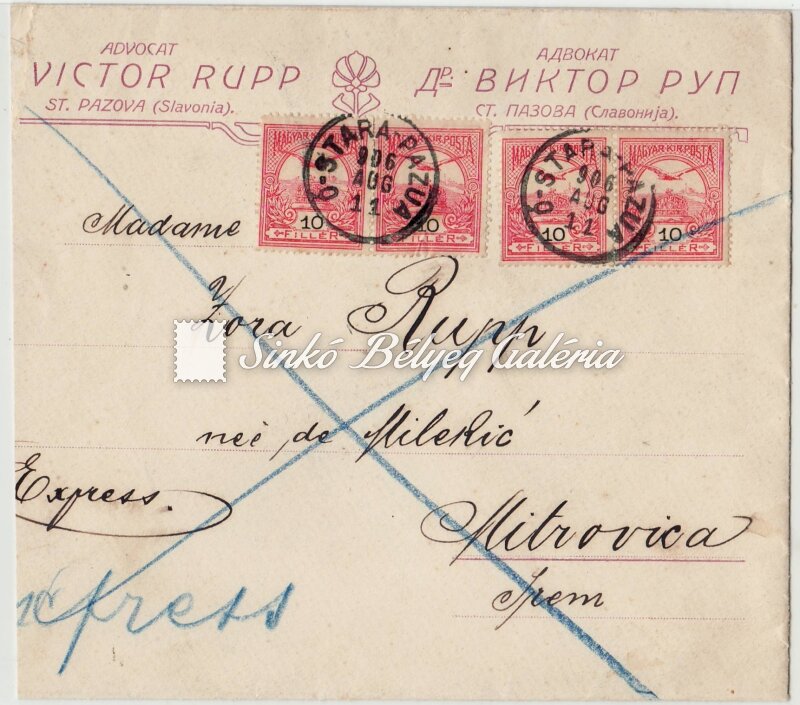 ADVOCAT
VICTOR RUPP
ST. PAZOVA (Slavonia).
АДВОКАТ
Др. ВИКТОР РУП
СТ. ПАЗОВА (Славонија).
MAGYAR KIR. POSTA
MAGYAR KIR. POSTA
MAGYAR KIR. POSTA
MAGYAR KIR. POSTA
Ó-STARA-PAZUA
906
AUG
11
Ó-STARA-PAZUA
906
AUG
11
10
FILLÉR
10
FILLÉR
10
FILLÉR
10
FILLÉR
Madame
Zora Rupp
Sinkó Bélyeg Galéria
neé de Milekić
Express.
Mitrovica
Srem
Express